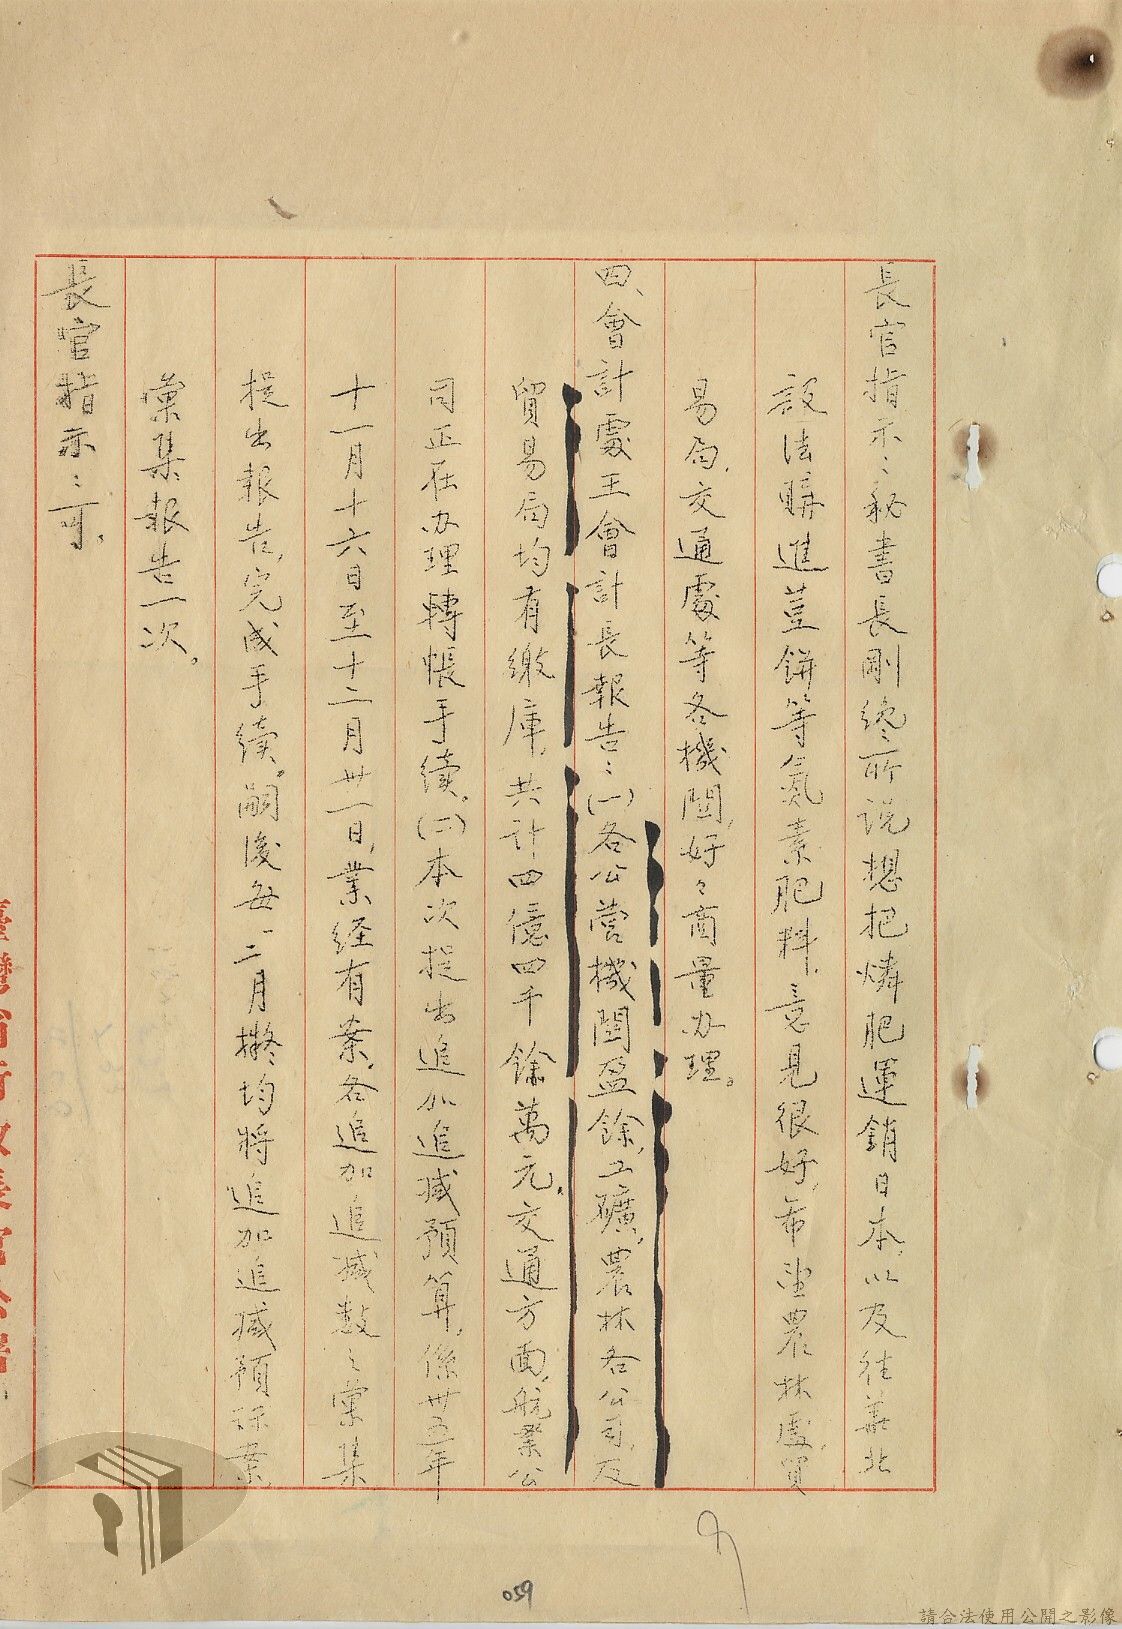 長官指示：秘書長剛纔所說想把燐肥運銷日本，以及往華北
設法購進荳餅等氮素肥料，意見很好，希望農林處，貿
易局，交通處等各機關，好々商量办理。
四、會計處王會計長報告：(一)各公營機關盈餘，工礦，農林各公司，及
貿易局均有繳庫，共計四億四千餘萬元。交通方面，航業公
司正在办理轉帳手續。(二)本次提出追加追减預算，係卅五年
十一月十六日至十二月卅一日，業経有案。各追加追减數之彙集
提出報告，完成手續。嗣後每一二月擬均將追加追减預祘案
彙集報告一次。
長官指示：可。
臺灣省行政長官公署
059
請合法使用公開之影像